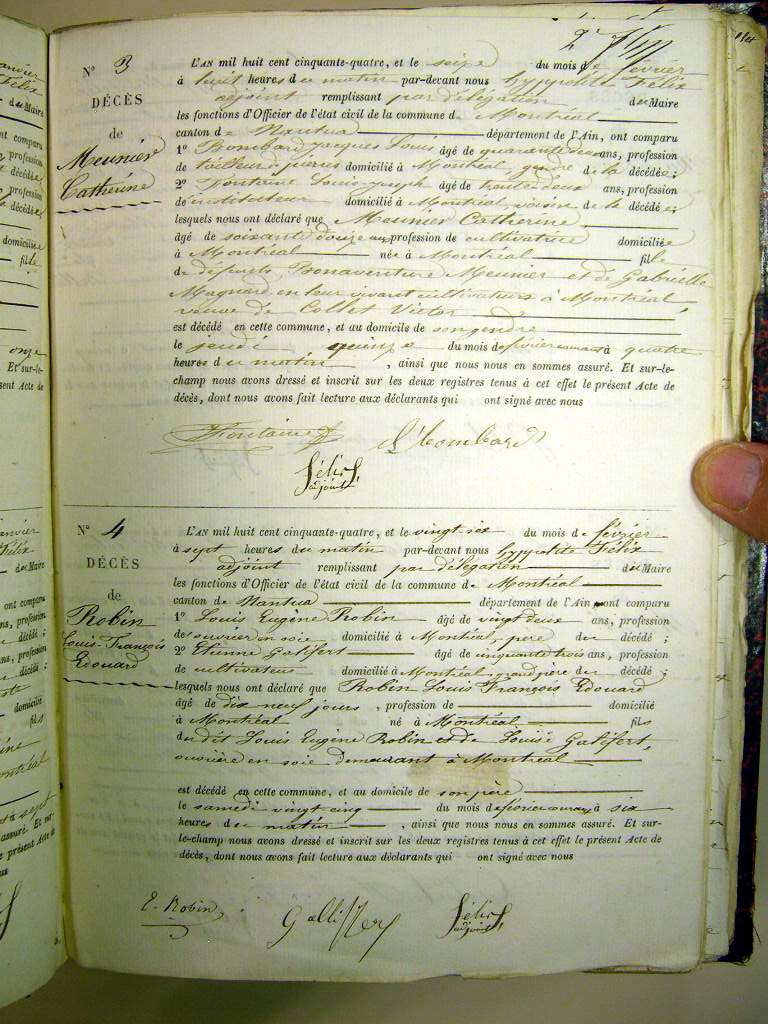 N° 3
DÉCÈS
de
Meunier
Catherine
L'AN mil huit cent cinquante-quatre, et le seize du mois de février
à huit heures du matin par-devant nous hyppolite Félix
adjoint remplissant par délégation du Maire
les fonctions d'Officier de l'état civil de la commune de Montréal
canton de Nantua département de l'Ain, ont comparu
1° Bombard Jacques Louis âgé de quarante deux ans, profession
de tailleur pierres domicilié à Montréal, gendre de la décédée;
2° Fontaine Louis Joseph âgé de trente deux ans, profession
de instituteur domicilié à Montréal, voisin de la décédée;
lesquels nous ont déclaré que Meunier Catherine
âgé de soixante douze ans profession de cultivatrice domiciliée
à Montréal née à Montréal fille
de défunts Bonaventure Meunier et de Gabrielle
Magnard en leur vivant cultivateurs à Montréal
veuve de Collet Victor
est décédé en cette commune, et au domicile de son gendre
le jeudi quinze du mois de février courant à quatre
heures du matin, ainsi que nous nous en sommes assuré. Et sur-le-
champ nous avons dressé et inscrit sur les deux registres tenus à cet effet le présent Acte de
décès, dont nous avons fait lecture aux déclarants qui ont signé avec nous
Fontaine Bombard
Félix
adjoint
N° 4
DÉCÈS
de
Robin
Louis François
Edouard
L'AN mil huit cent cinquante-quatre, et le vingt six du mois de février
à sept heures du matin par-devant nous hyppolite Félix
adjoint remplissant par délégation du Maire
les fonctions d'Officier de l'état civil de la commune de Montréal
canton de Nantua département de l'Ain, ont comparu
1° Louis Eugène Robin âgé de vingt deux ans, profession
de ouvrier en soie domicilié à Montréal, père du décédé;
2° Etienne Galifert âgé de cinquante trois ans, profession
de cultivateur domicilié à Montréal grand père du décédé;
lesquels nous ont déclaré que Robin Louis François Edouard
âgé de dix neuf jours, profession de domicilié
à Montréal né à Montréal fils
du dit Louis Eugène Robin et de Louise Galifert,
ouvrière en soie demeurant à Montréal
est décédé en cette commune, et au domicile de son père
le samedi vingt cinq du mois de février courant à six
heures du matin, ainsi que nous nous en sommes assuré. Et sur-
le-champ nous avons dressé et inscrit sur les deux registres tenus à cet effet le présent Acte de
décès, dont nous avons fait lecture aux déclarants qui ont signé avec nous
E. Robin Félix
adjoint